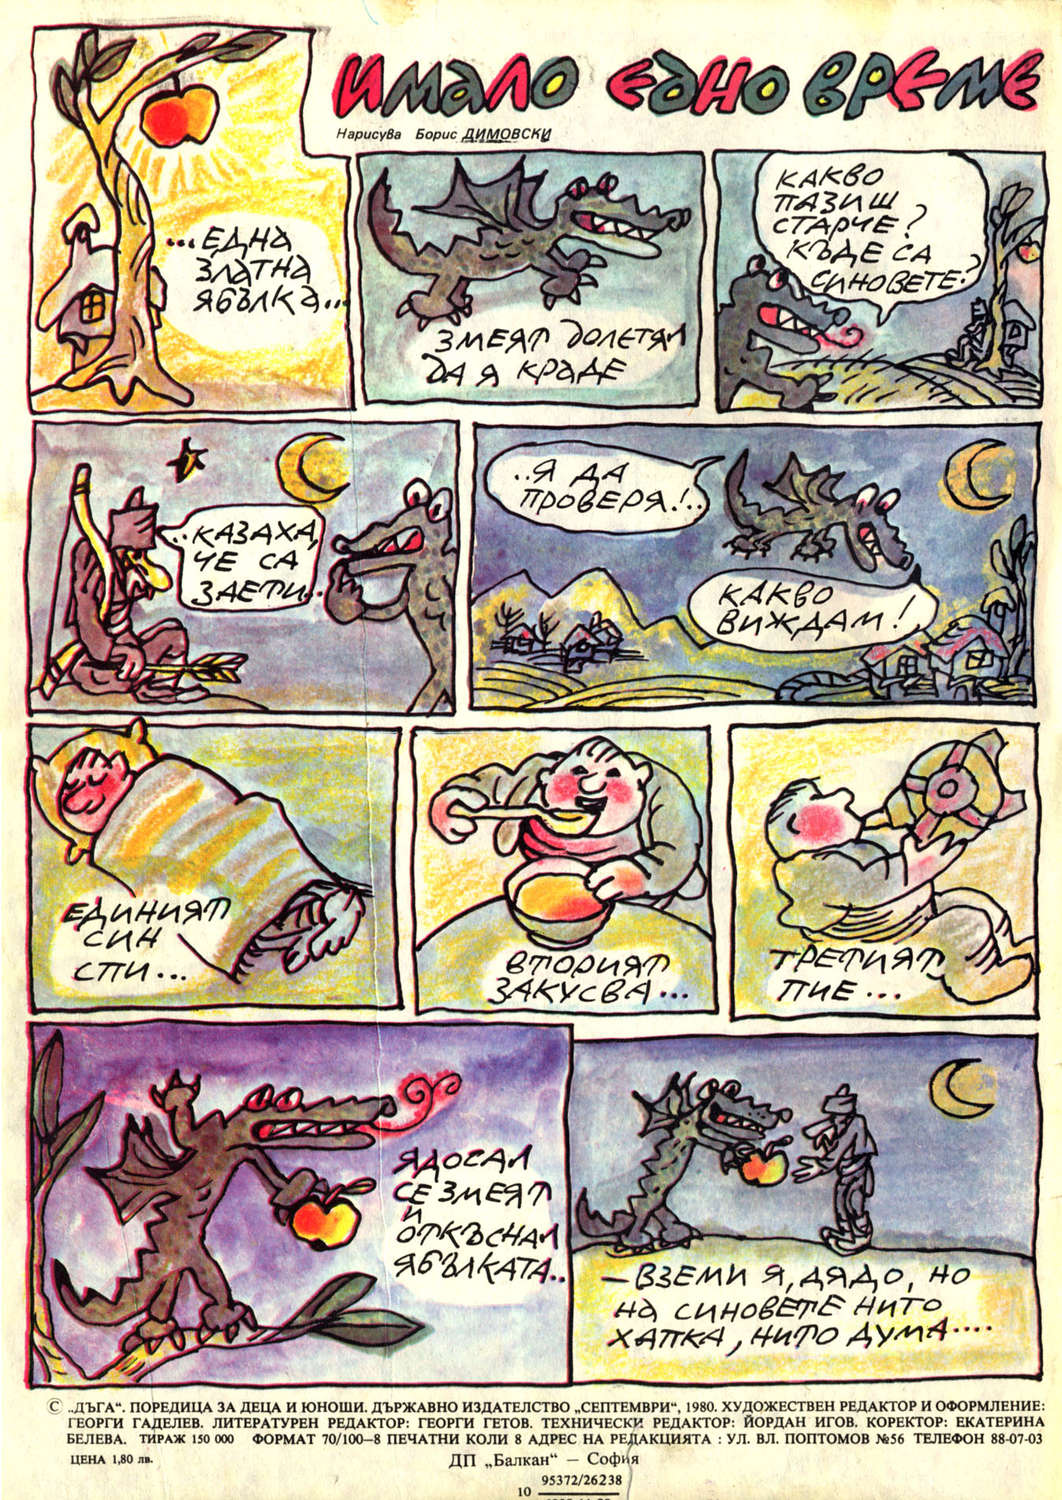 ИМАЛО ЕДНО ВРЕМЕ
Нарисува Борис ДИМОВСКИ
...ЕДНА
ЗЛАТНА
ЯБЪЛКА...
ЗМЕЯТ ДОЛЕТЯЛ
ДА Я КРАДЕ
КАКВО
ПАЗИШ
СТАРЧЕ?
КЪДЕ СА
СИНОВЕТЕ?
..КАЗАХА,
ЧЕ СА
ЗАЕТИ..
..Я ДА
ПРОВЕРЯ!..
КАКВО
ВИЖДАМ!
ЕДИНИЯТ
СИН
СПИ...
ВТОРИЯТ
ЗАКУСВА...
ТРЕТИЯТ
ПИЕ...
ЯДОСАЛ
СЕ ЗМЕЯТ
И
ОТКЪСНАЛ
ЯБЪЛКАТА..
– ВЗЕМИ Я, ДЯДО, НО
НА СИНОВЕТЕ НИТО
ХАПКА, НИТО ДУМА....
© „ДЪГА“. ПОРЕДИЦА ЗА ДЕЦА И ЮНОШИ. ДЪРЖАВНО ИЗДАТЕЛСТВО „СЕПТЕМВРИ“, 1980. ХУДОЖЕСТВЕН РЕДАКТОР И ОФОРМЛЕНИЕ:
ГЕОРГИ ГАДЕЛЕВ. ЛИТЕРАТУРЕН РЕДАКТОР: ГЕОРГИ ГЕТОВ. ТЕХНИЧЕСКИ РЕДАКТОР: ЙОРДАН ИГОВ. КОРЕКТОР: ЕКАТЕРИНА
БЕЛЕВА. ТИРАЖ 150 000 ФОРМАТ 70/100–8 ПЕЧАТНИ КОЛИ 8 АДРЕС НА РЕДАКЦИЯТА : УЛ. ВЛ. ПОПТОМОВ №56 ТЕЛЕФОН 88-07-03
ЦЕНА 1,80 лв.
ДП „Балкан“ — София
95372/26238
10